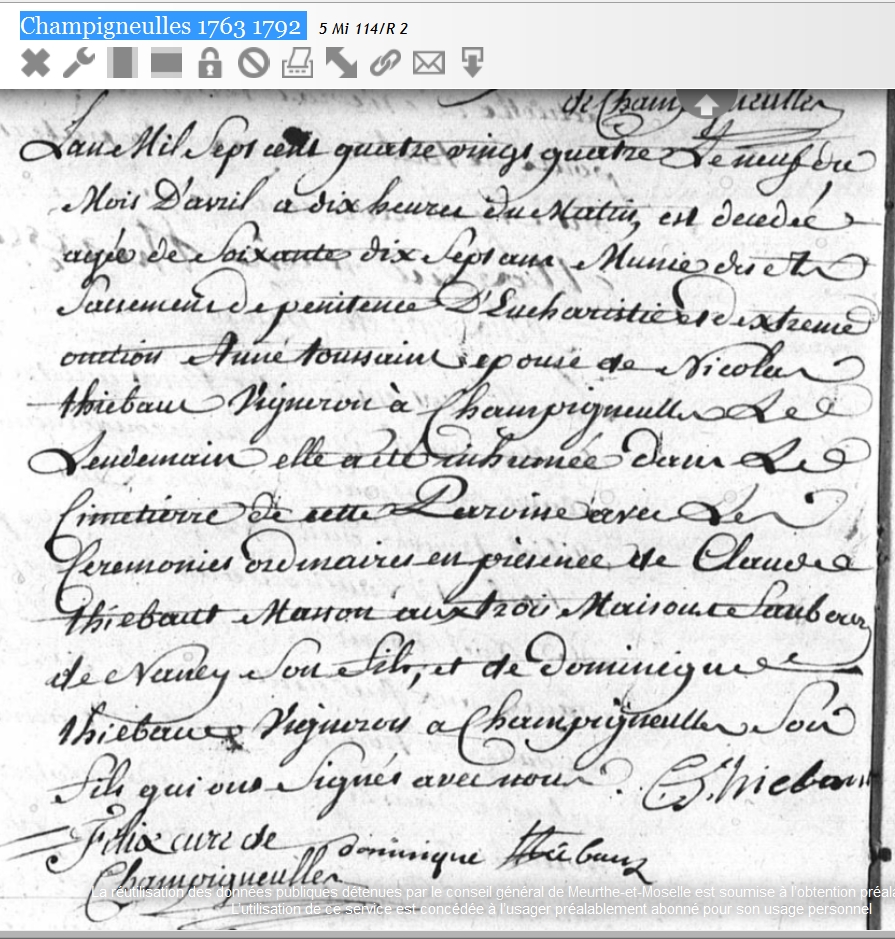 Champigneulles 1763 1792 5 Mi 114/R 2
de Champigneulles
L'an Mil Sept cent quatre vingt quatre Le neuf du
Mois D'avril a dix heures du Matin, est decedée
agée de Soixante dix Sept ans Munie des
Sacremens de penitence D'Eucharistie et d'extreme
onction Anne toussaint epouse de Nicolas
thiebaut Vigneron à Champigneulles Le
Lendemain elle a été inhumée dans Le
Cimetierre de cette Paroisse avec Les
Ceremonies ordinaires en présence de Claude
thiebaut Masson aux trois Maisons faubourg
de Nancy Son fils, et de dominique
thiebaut Vigneron a Champigneulles Son
fils qui ont Signés avec nous. C Thiebaut
Felix curé de dominique thiebaut
Champigneulles
La réutilisation des données publiques détenues par le conseil général de Meurthe-et-Moselle est soumise à l'obtention préala
L'utilisation de ce service est concédée à l'usager préalablement abonné pour son usage personnel